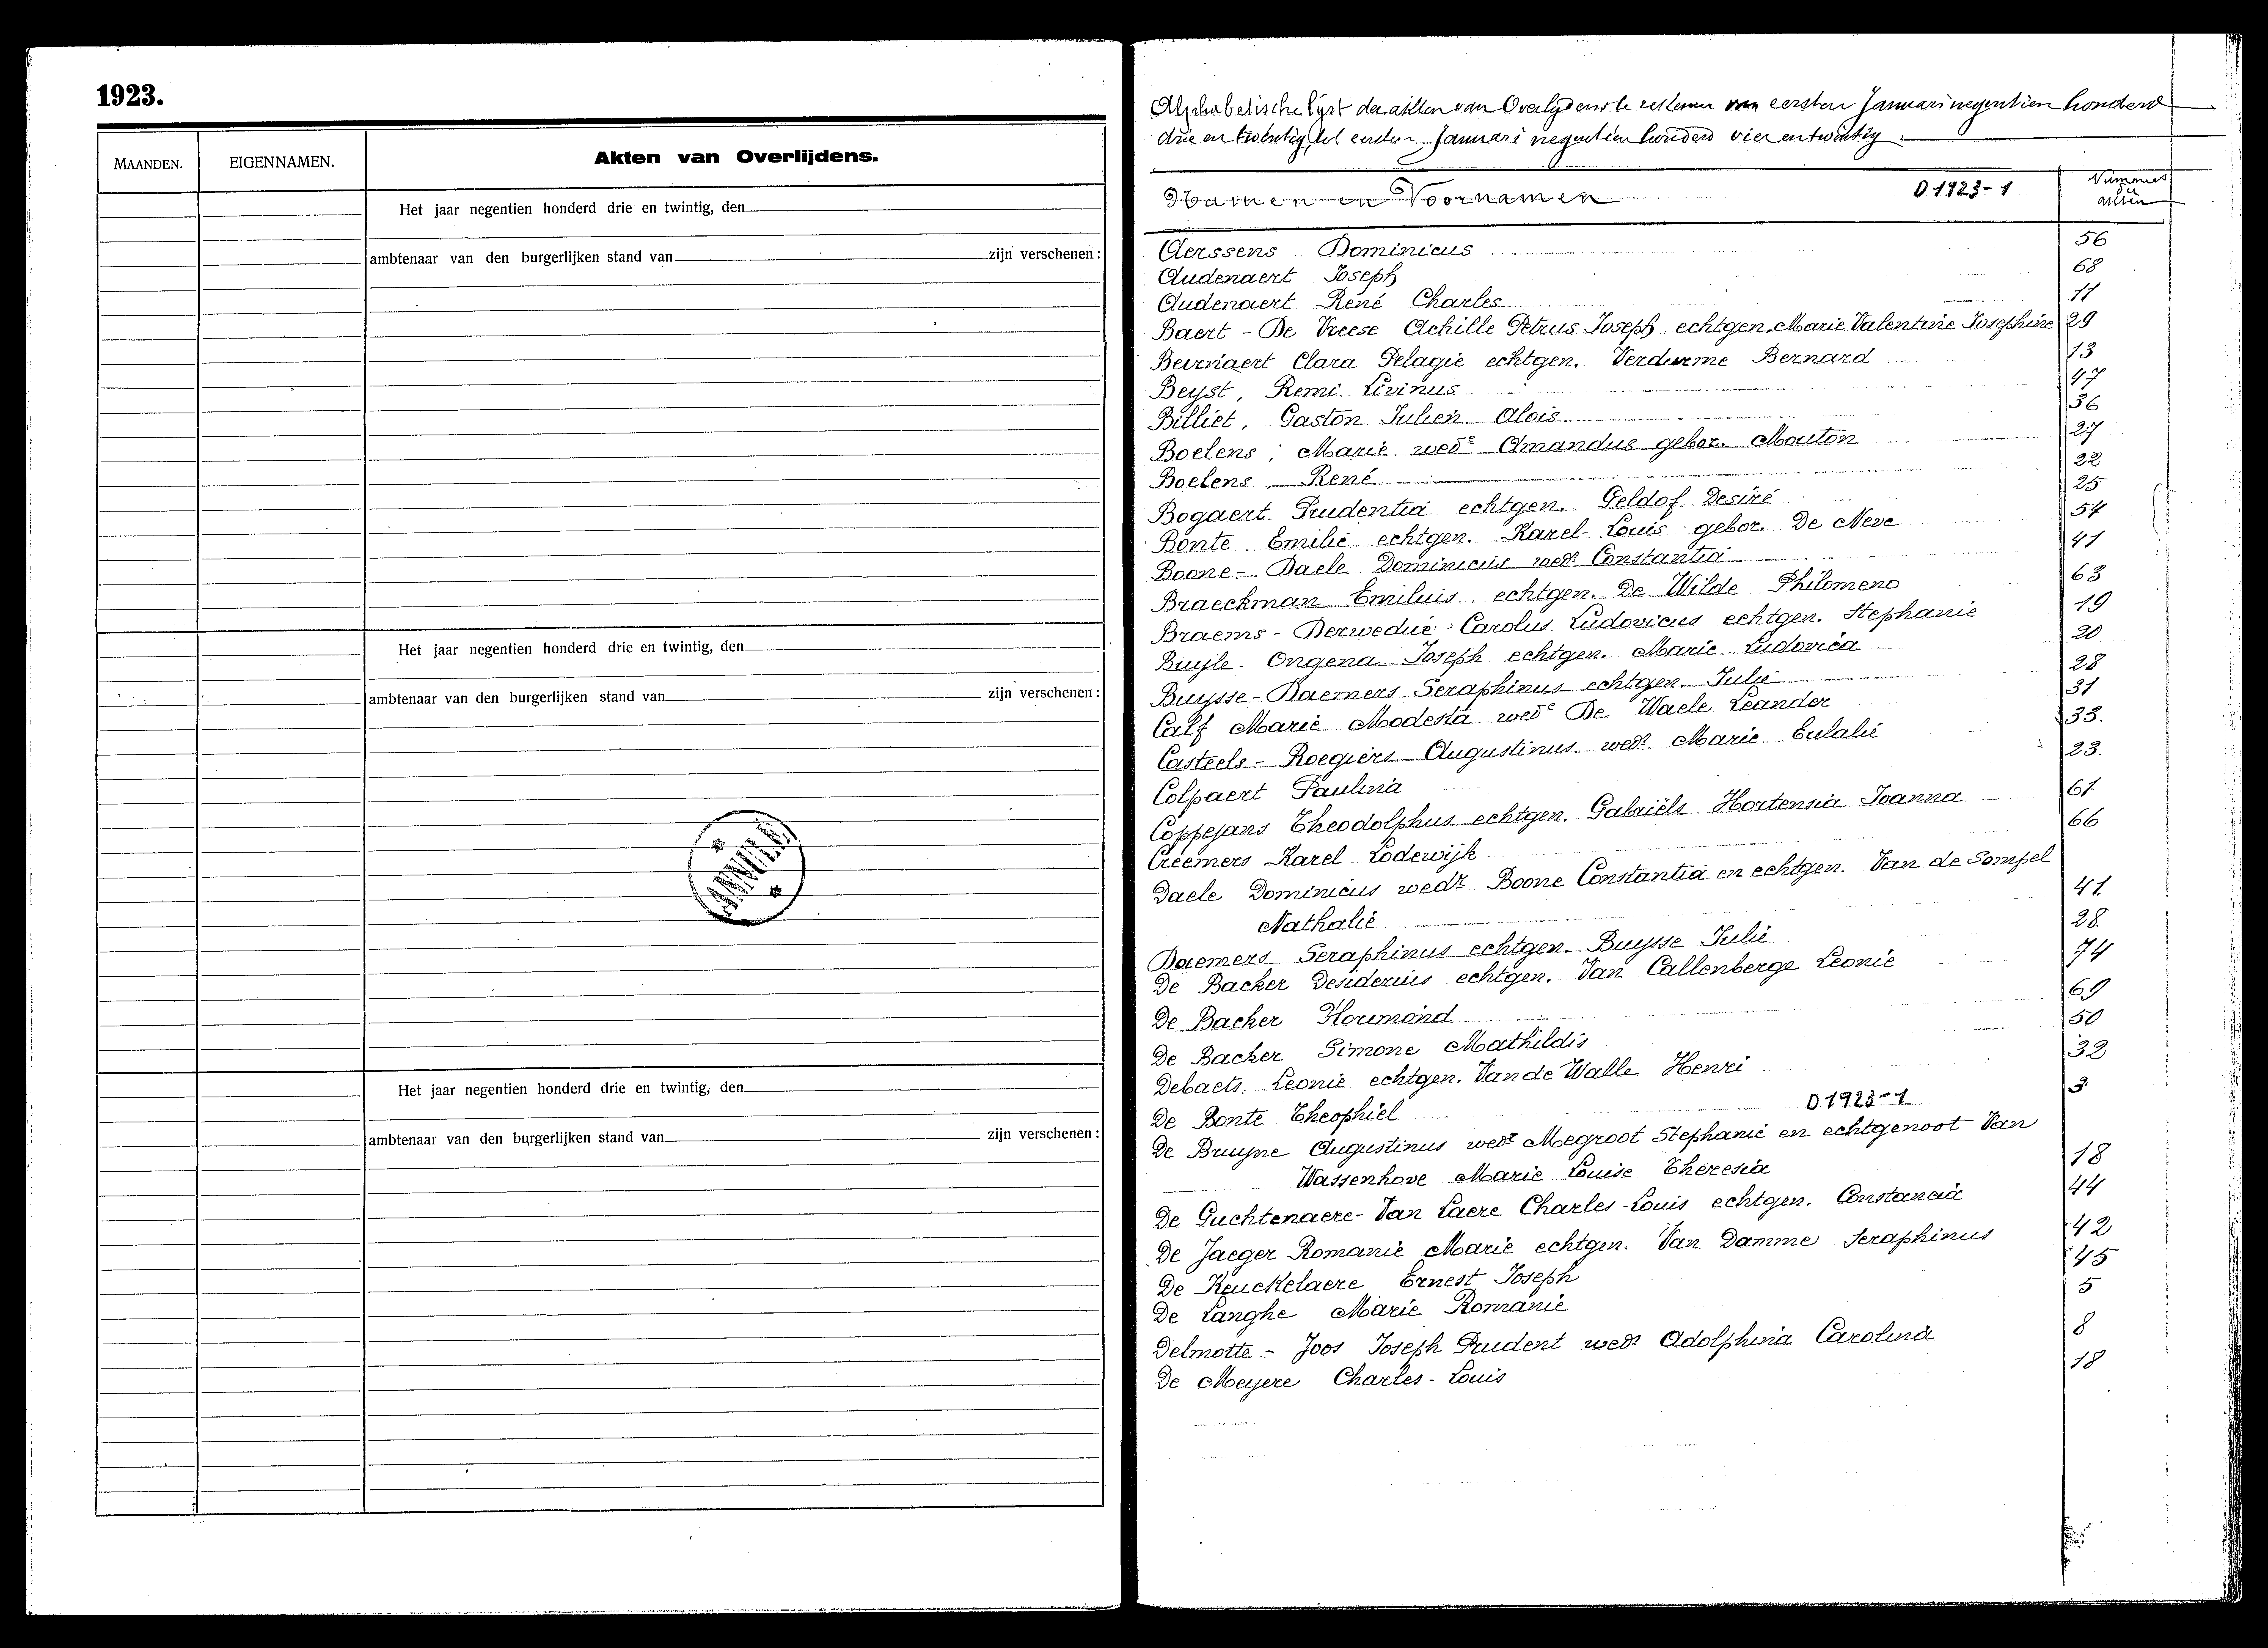 1923.
MAANDEN.
EIGENNAMEN.
Akten van Overlijdens.
Het jaar negentien honderd drie en twintig, den
ambtenaar van den burgerlijken stand van zijn verschenen:
Het jaar negentien honderd drie en twintig, den
ambtenaar van den burgerlijken stand van zijn verschenen:
ANNULÉ
Het jaar negentien honderd drie en twintig, den
ambtenaar van den burgerlijken stand van zijn verschenen:
Alphabetische lijst der akten van Overlydens te rekenen van eersten Januari negentien honderd
drie en twintig tot eersten Januari negentien honderd vier en twintig
Namen en Voornamen D 1923-1 Nummers der akten
Aerssens Dominicus 56
Audenaert Joseph 68
Audenaert René Charles 11
Baert - De Vreese Achille Petrus Joseph echtgen. Marie Valentine Josephine 29
Beirnaert Clara Pelagie echtgen. Verdurme Bernard 13
Beyst, Remi Livinus 47
Billiet, Gaston Julien Alois 36
Boelens, Marie wede Amandus gebor. Mouton 27
Boelens René 22
Bogaert Prudentia echtgen. Geldof Desiré 25
Bonte Emilie echtgen. Karel-Louis gebor. De Neve 54
Boone - Daele Dominicus wedr Constantia 41
Braeckman Emiluis echtgen. De Wilde Philomeno 63
Braems - Derwedue Carolus Ludovicus echtgen. Stephanie 19
Buyle - Ongena Joseph echtgen. Marie Ludovica 20
Buysse - Daemers Seraphinus echtgen. Julie 28
Calf Marie Modesta wede De Waele Leander 31
Casteels - Roegiers Augustinus wedr Marie Eulalie 33.
Colpaert Paulina 23.
Coppejans Theodolphus echtgen. Gabriëls Hortensia Joanna 61
Creemers Karel Lodewijk 66
Daele Dominicus wedr Boone Constantia en echtgen. Van de Sompel
Nathalie 41
Daemers Seraphinus echtgen. Buysse Julie 28
De Backer Desiderius echtgen. Van Callenberge Leonie 74
De Backer Florimond 69
De Backer Simone Mathildis 50
Debaets Leonie echtgen. Van de Walle Henri 32
De Bonte Theophiel 3
D 1923-1
De Bruyne Augustinus wedr Megroot Stephanie en echtgenoot Van
Wassenhove Marie Louise Theresia 18
De Guchtenaere - Van Laere Charles-Louis echtgen. Constancia 44
De Jaeger Romanie Marie echtgen. Van Damme Seraphinus 42
De Keuckelaere Ernest Joseph 45
De Langhe Marie Romanie 5
Delmotte - Joos Joseph Prudent wedr Adolphina Carolina 8
De Meyere Charles-Louis 18